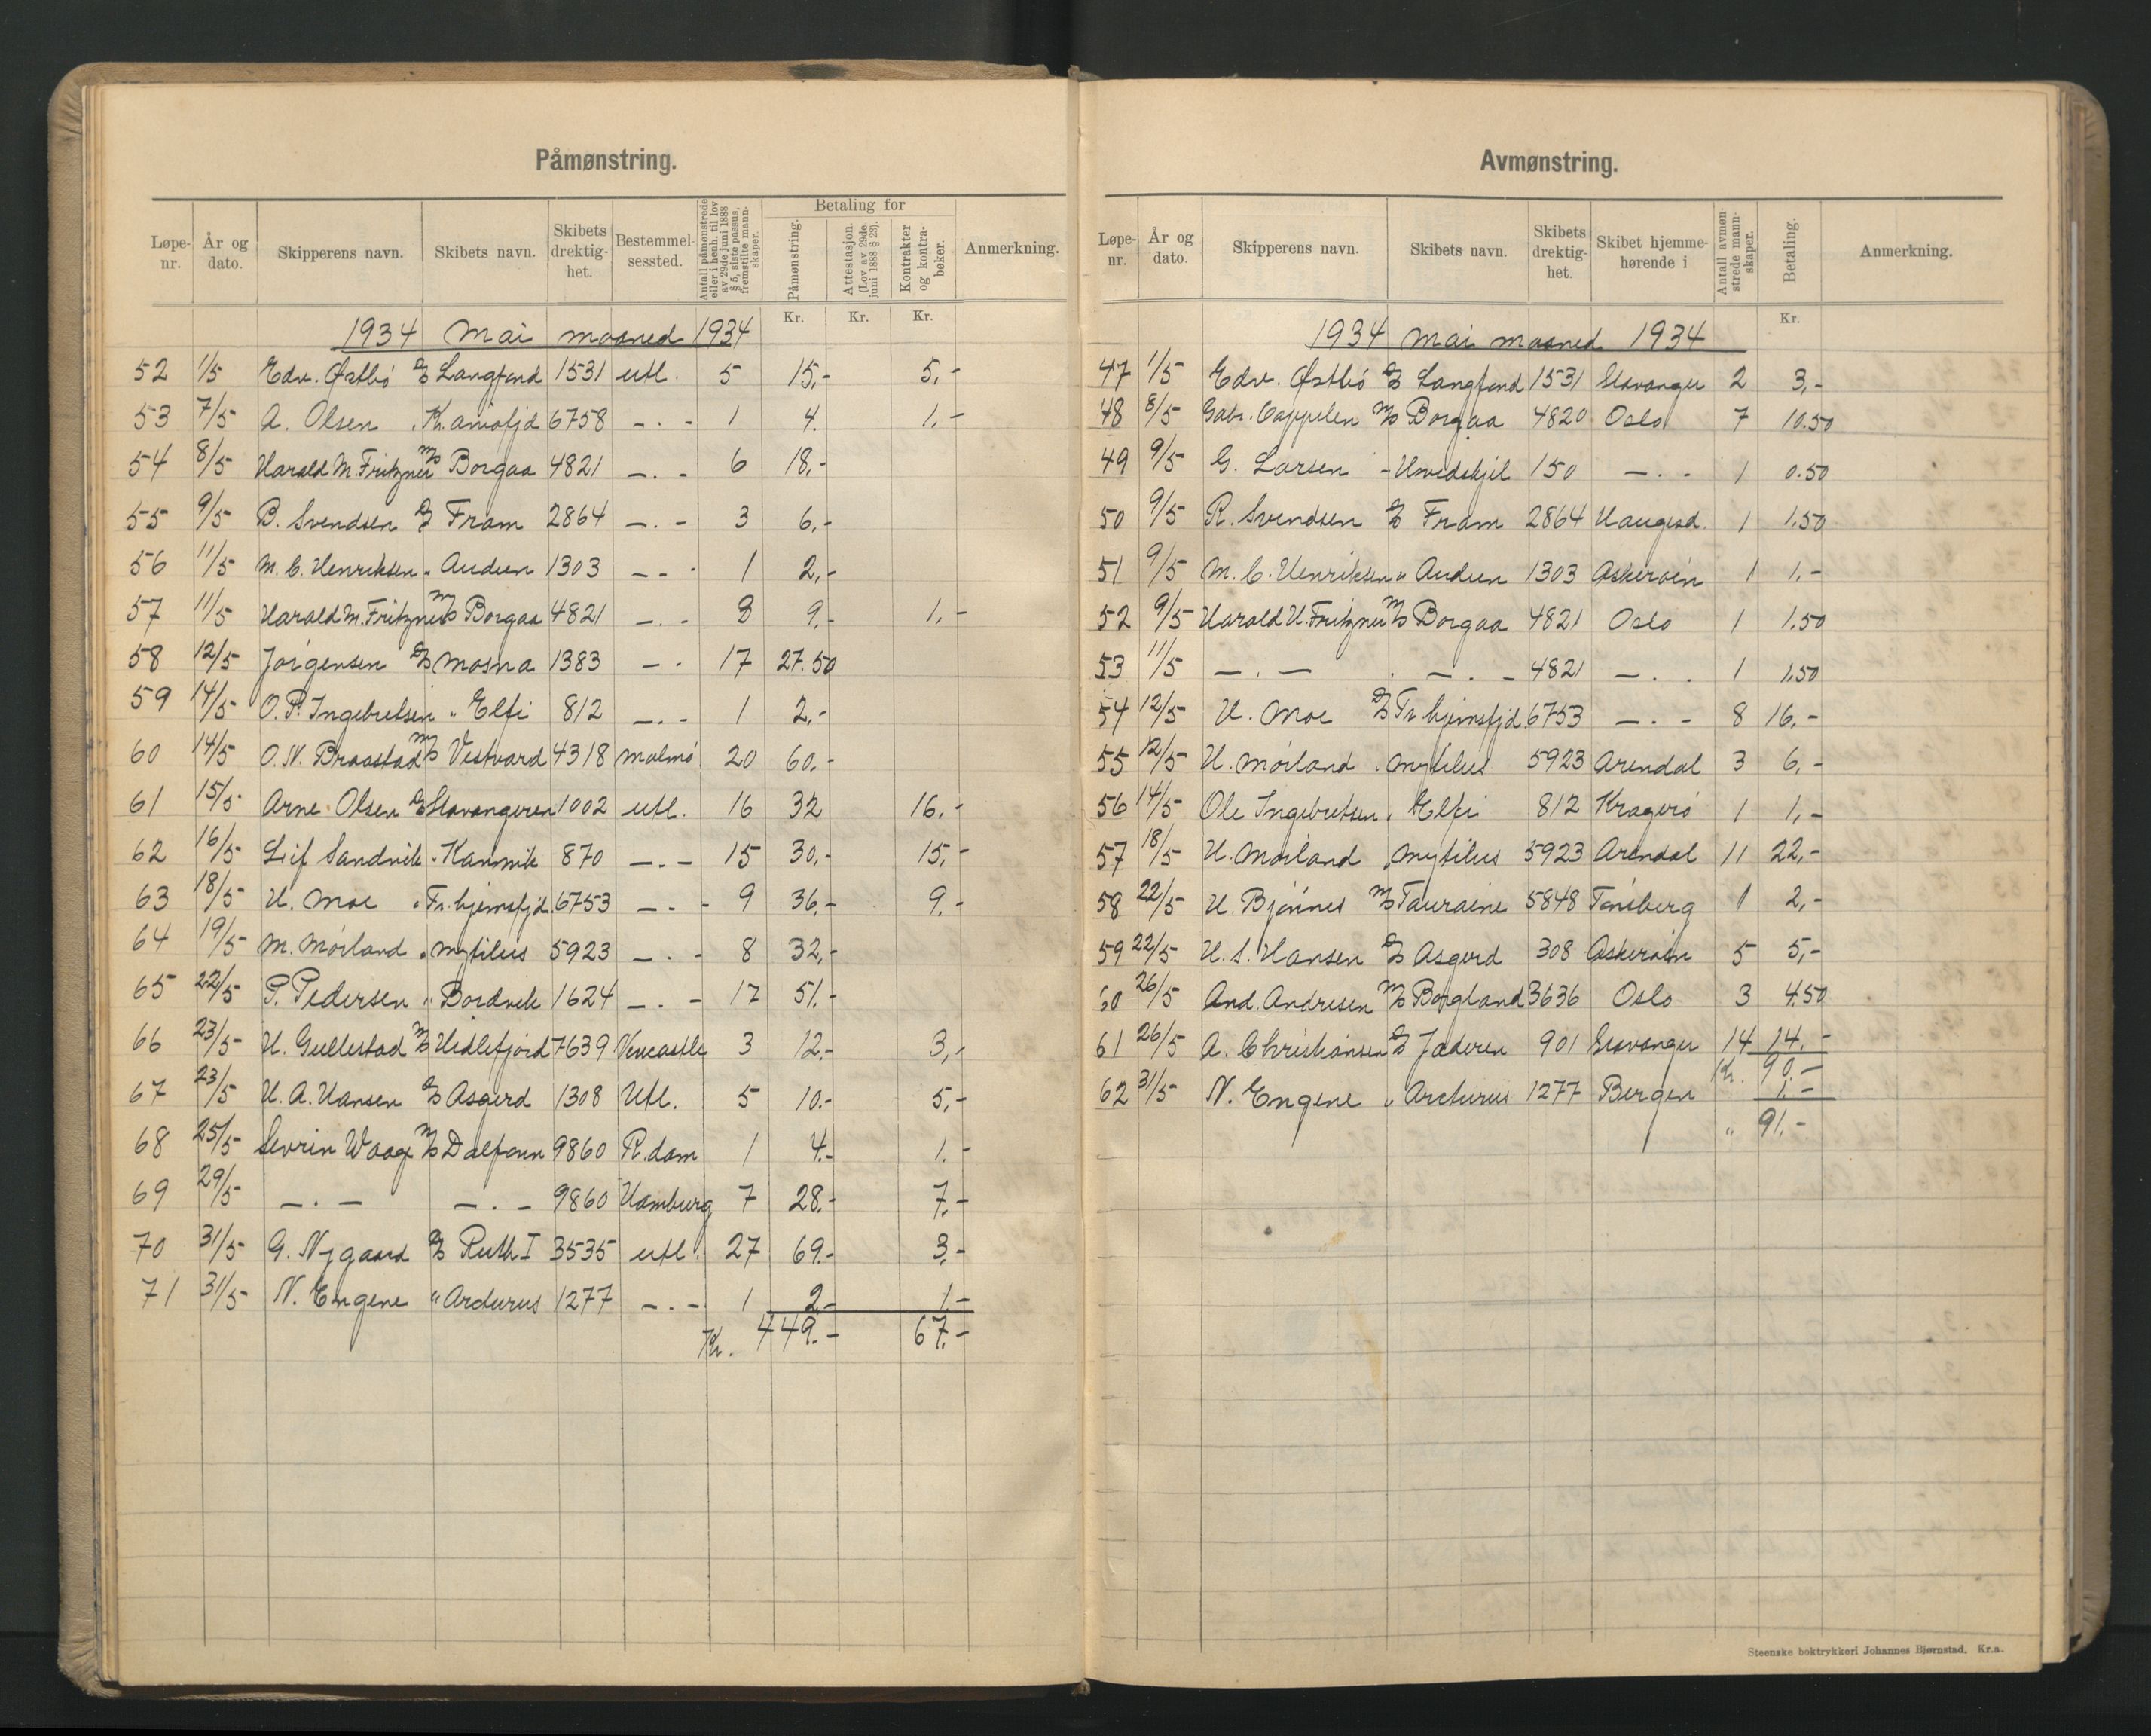 Påmønstring.
Løpe-nr. | År og dato. | Skipperens navn. | Skibets navn. | Skibets drektig-het. | Bestemmel-sessted. | Antall påmønstrede eller i henh. til lov av 29de juni 1888 § 5, siste passus, fremstilte mann-skaper. | Betaling for | Påmønstring. | Attestasjon. (Lov av 29de juni 1888 § 23). | Kontrakter og kontra-bøker. | Anmerkning.
Kr. Kr. Kr.
1934 Mai maaned 1934
52 1/5 Edv. Østbö D/S Langfond 1531 utl. 5 15,- 5,-
53 7/5 A. Olsen " Kr.aniafjd 6758 -.- 1 4. 1,-
54 8/5 Harald M. Fritzner M/S Borgaa 4821 -.- 6 18,-
55 9/5 B. Svendsen D/S Fram 2864 -.- 3 6,-
56 11/5 M. C. Henriksen " Audun 1303 -.- 1 2,-
57 11/5 Harald M. Fritzner M/S Borgaa 4821 -.- 3 9,- 1,-
58 12/5 Jörgensen D/S Mosna 1383 -.- 17 27.50
59 14/5 O. P. Ingebretsen " Elfi 812 -.- 1 2,-
60 14/5 O. N. Braastad M/S Vestvard 4318 Malmö 20 60,-
61 15/5 Arne Olsen D/S Stavangeren 1002 utl. 16 32 16,-
62 16/5 Leif Sandvik " Karmvik 870 -.- 15 30,- 15,-
63 18/5 H. Moe " Tr.hjemsfjd. 6753 -.- 9 36,- 9.-
64 19/5 M. Mörland " Mytilus 5923 -.- 8 32,-
65 22/5 P. Pedersen " Bordvik 1624 -.- 17 51.-
66 23/5 H. Gullestad M/S Hidlefjord 7639 Newcastle 3 12.- 3,-
67 23/5 H. A. Hansen D/S Asgerd 1308 Utl. 5 10.- 5,-
68 25/5 Sevrin Waage M/S Dalfonn 9860 R.dam 1 4.- 1.-
69 29/5 -.- -.- 9860 Hamburg 7 28.- 7.-
70 31/5 G. Nygaard D/S Ruth I 3535 utl. 27 69.- 3.-
71 31/5 N. Engene " Arcturus 1277 -.- 1 2.- 1.-
Kr. 449.- 67.-
Avmønstring.
Løpe-nr. | År og dato. | Skipperens navn. | Skibets navn. | Skibets drektig-het. | Skibet hjemme-hørende i | Antall avmøn-strede mann-skaper. | Betaling. | Anmerkning.
Kr.
1934 Mai maaned 1934
47 1/5 Edv. Østbö D/S Langfond 1531 Stavanger 2 3,-
48 8/5 Gabr. Cappelen M/S Borgaa 4820 Oslo 7 10.50
49 9/5 G. Larsen - Hvidskjel 150 -.- 1 0.50
50 9/5 R. Svendsen D/S Fram 2864 Haugesd. 1 1,50
51 9/5 M. C. Henriksen " Audun 1303 Askeröen 1 1.-
52 9/5 Harald H. Fritzner M/S Borgaa 4821 Oslo 1 1.50
53 11/5 -.- -.- 4821 -.- 1 1,50
54 12/5 H. Moe D/S Tr.hjemsfjd. 6753 -.- 8 16,-
55 12/5 H. Mörland " Mytilus 5923 Arendal 3 6,-
56 14/5 Ole Ingebretsen " Elfi 812 Kragerö 1 1,-
57 18/5 H. Mörland " Mytilus 5923 Arendal 11 22,-
58 22/5 H. Bjönnes M/S Tauraine 5848 Tönsberg 1 2,-
59 22/5 H. S. Hansen D/S Asgerd 308 Askeröen 5 5,-
60 26/5 And. Andresen M/S Borgland 3636 Oslo 3 4.50
61 26/5 A. Christiansen D/S Jæderen 901 Stavanger 14 14.-
Kr. 90.-
62 31/5 N. Engene " Arcturus 1277 Bergen 1.-
" 91.-
Steenske boktrykkeri Johannes Bjørnstad. Kr.a.